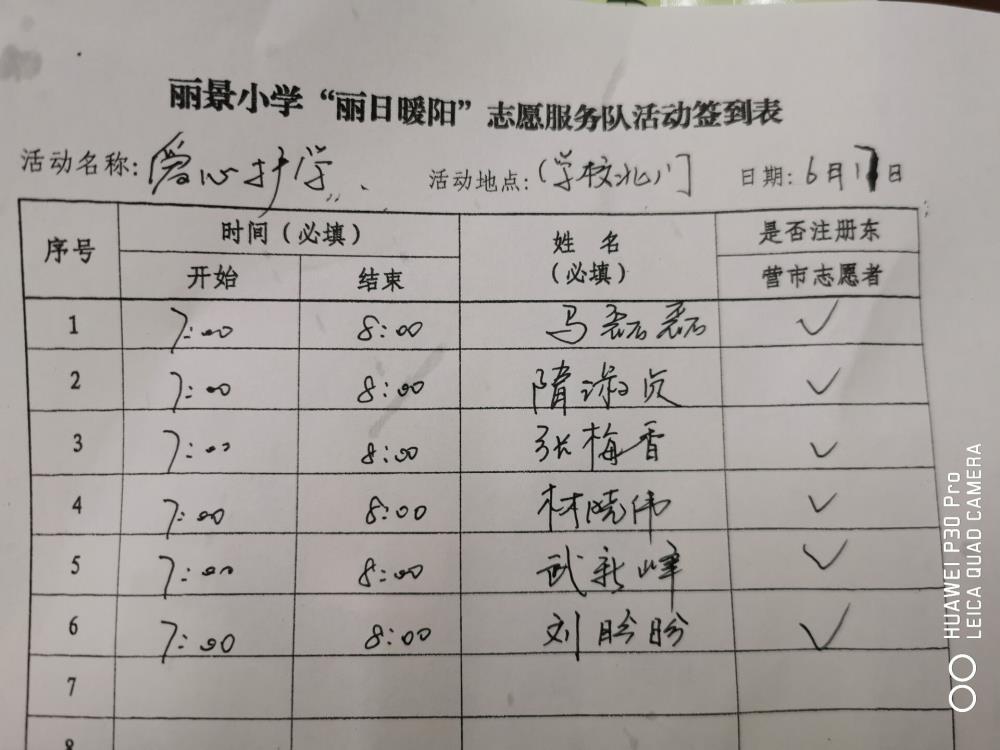 丽景小学“丽日暖阳”志愿服务队活动签到表
活动名称:爱心护学 活动地点:(学校北门 日期:6月17日
序号 时间(必填) 姓名(必填) 是否注册东营市志愿者
开始 结束
1 7:00 8:00 马磊磊 ✓
2 7:00 8:00 隋淑贞 ✓
3 7:00 8:00 张梅香 ✓
4 7:00 8:00 林晓伟 ✓
5 7:00 8:00 武新峰 ✓
6 7:00 8:00 刘盼盼 ✓
7
8
HUAWEI P30 Pro
LEICA QUAD CAMERA